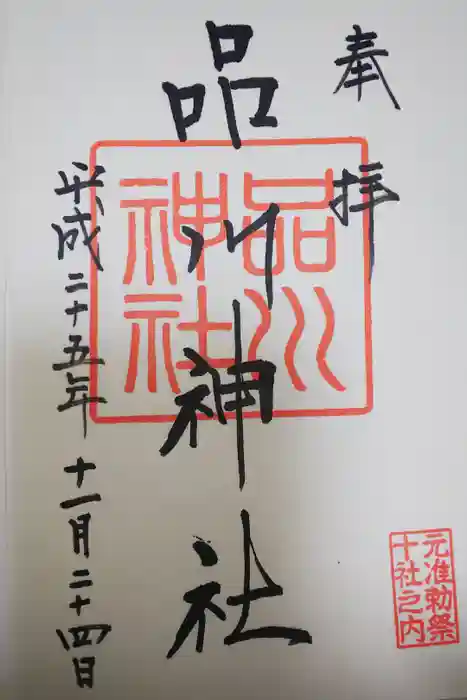 奉拝
品川神社
平成二十五年十一月二十四日
品川
神社
元准勅祭
十社之内